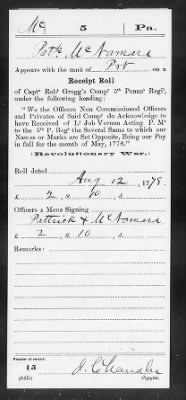 Mc 5 Pa.
Patk McNamara
Appears with the rank of Pvt on a
Receipt Roll
of Capt. Robt Gregg's Comp' 5th Penns' Regt,
under the following heading:
"We the Officers Non Commissioned Officers
and Privates of Said Comp' do Acknowledge to
have Received of Lt Job Vernon Acting P. Mr
to the 5th P. Regt the Several Sums to which our
Names or Marks are Set Opposite, Being our Pay
in full for the month of May, 1778."
(Revolutionary War.)
Roll dated
Aug 12, 1778.
£ 2, s. 10, d.
Officers & Mens Signing
Pattrick + McNamara
£ 2, s. 10, d.
Remarks:
Number of record:
15
J. C. Chandler
Copyist.